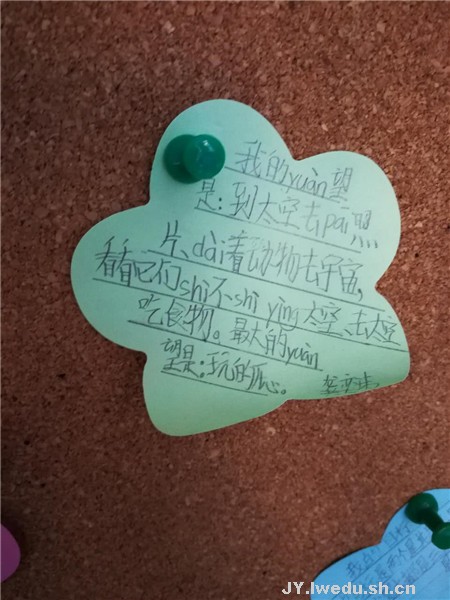 我的yuàn望
是:到太空去pāi照
片、dài着动物去宇宙,
看看它们shì不shì yìng太空、去太空
吃食物。最大的yuàn
望是:玩的开心。
JY.lwedu.sh.cn